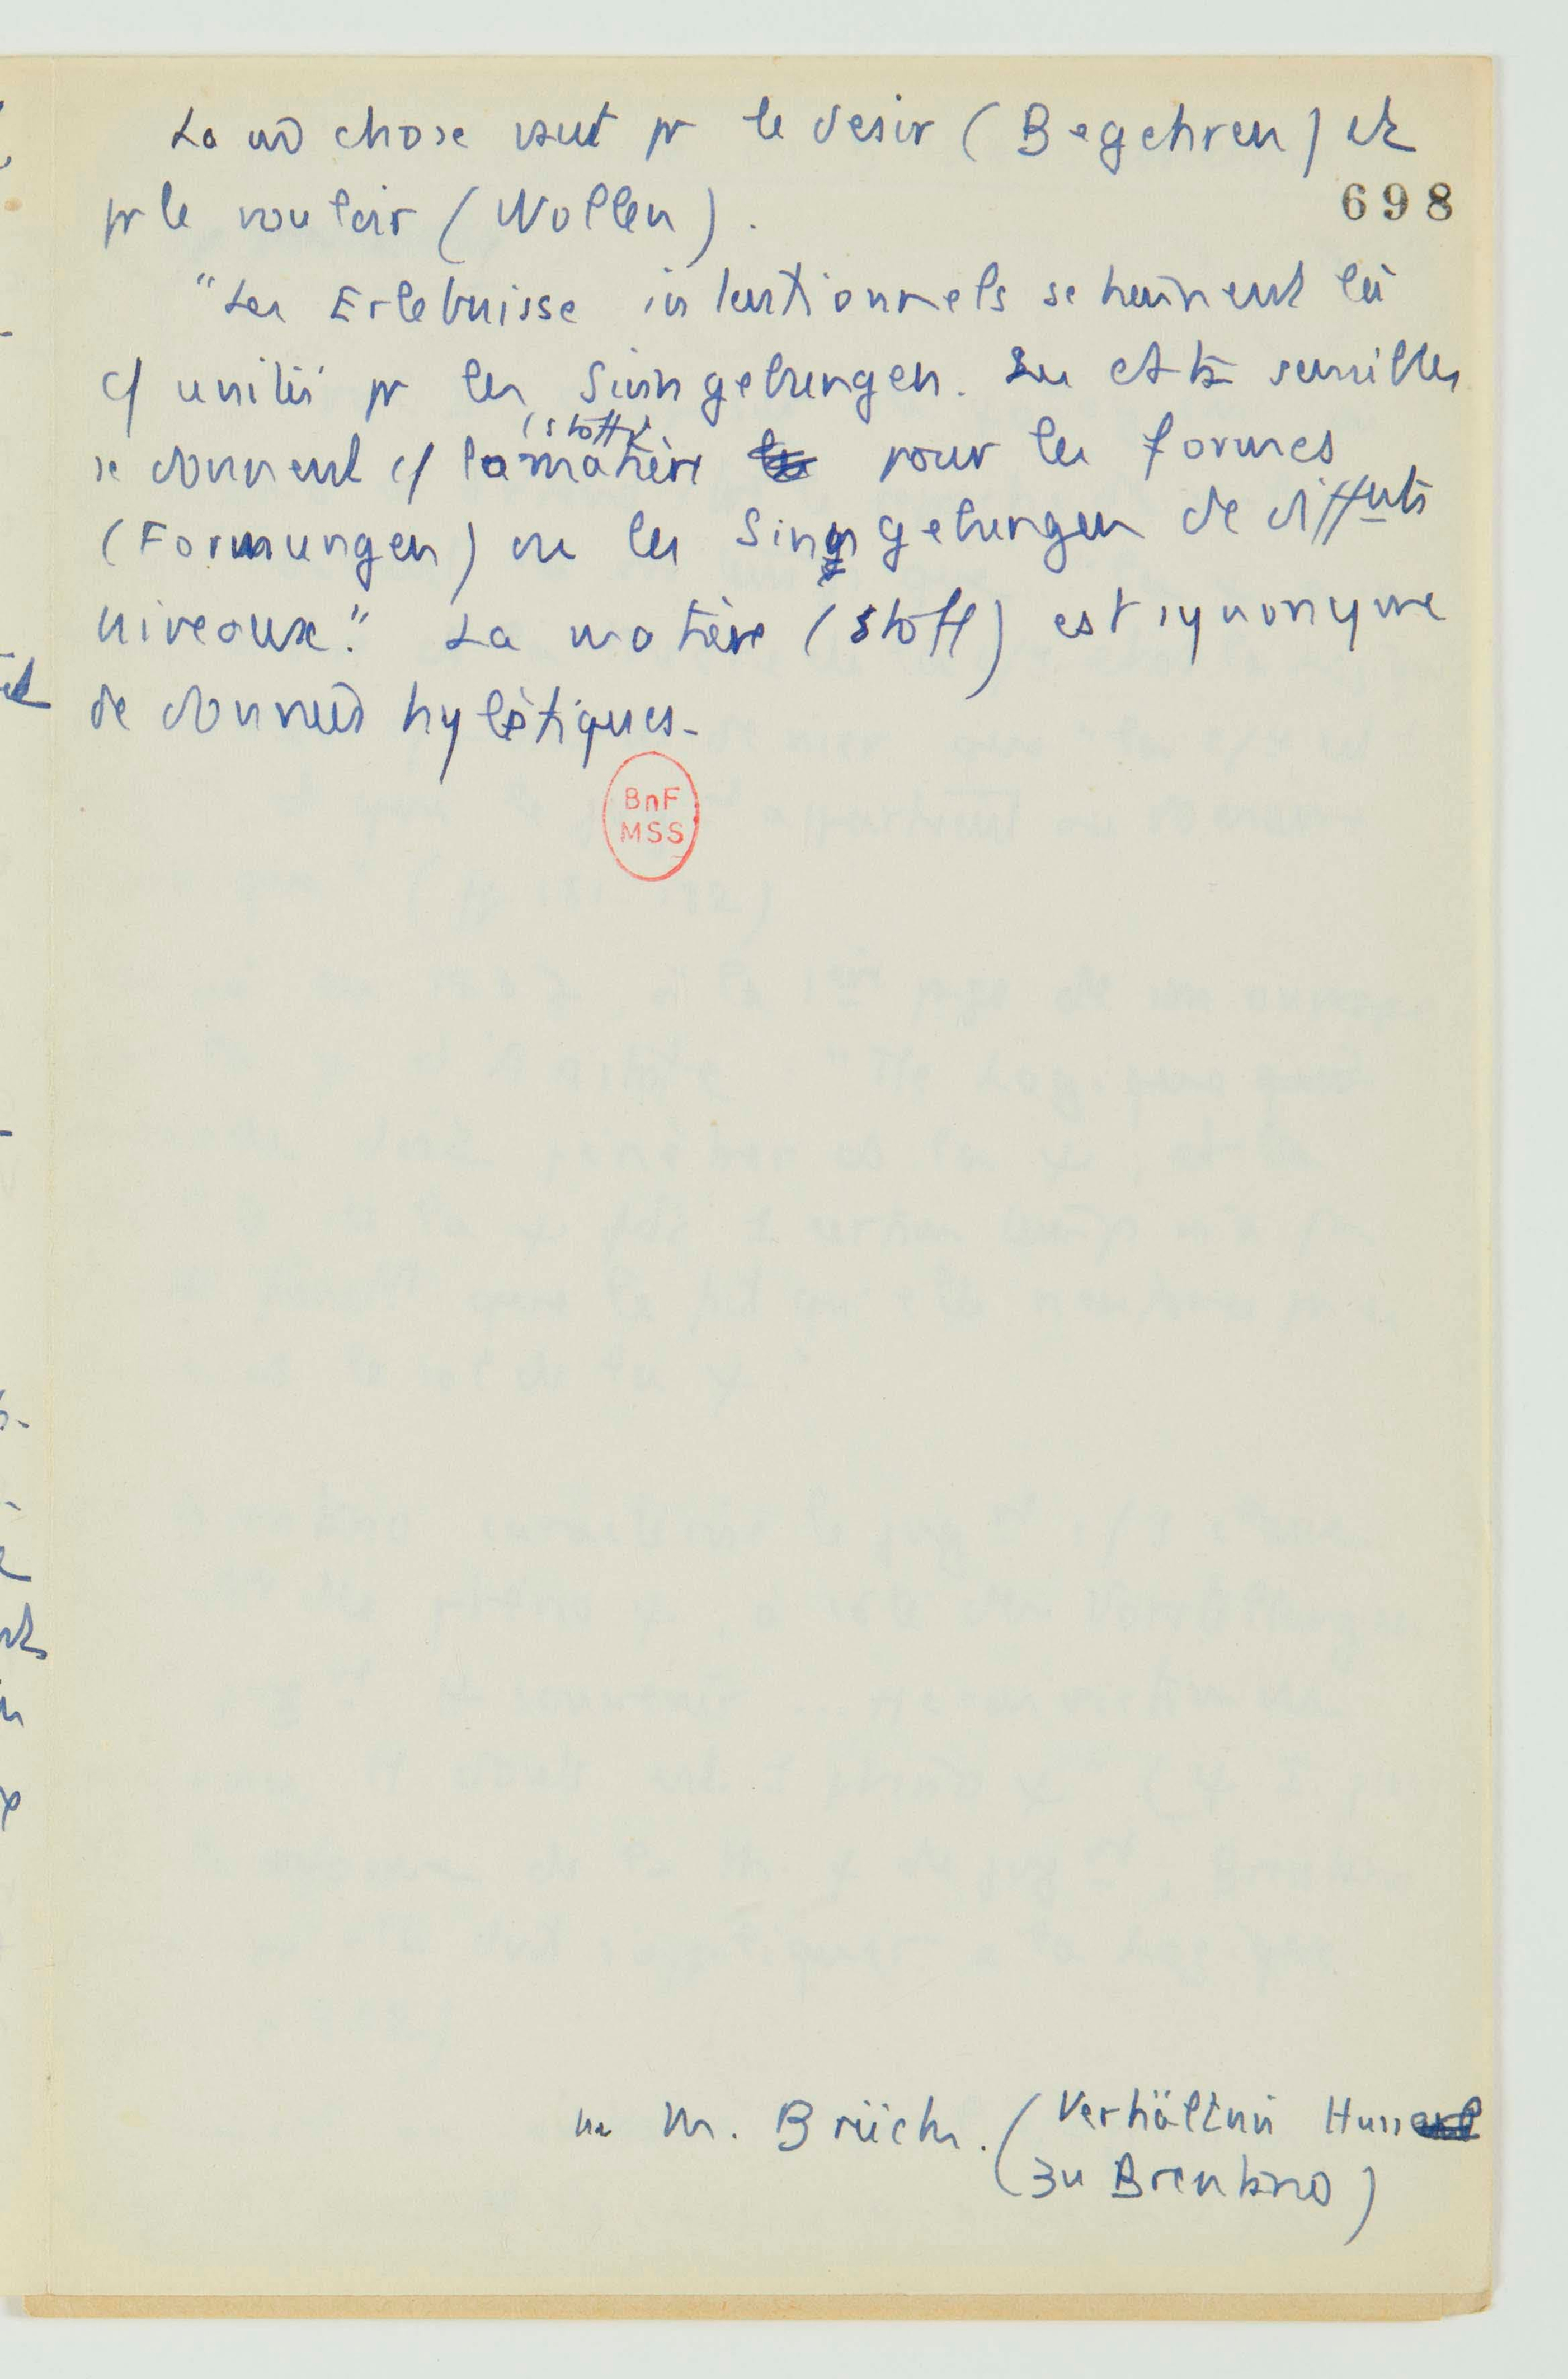 La m̄ chose vaut pr le desir (Begehren) et
698
pr le vouloir (Wollen).
"Les Erlebnisse intentionnels se tiennent là
c/ unités pr les Sinngebungen. Les data sensibles
(stoff)
se donnent c/ la matière pour les formes
(Formungen) ou les Sinngebungen de diffnts
niveaux." La matière (stoff) est synonyme
de données hylétiques.
BnF
MSS
M. Brück. (Verhältnis Husserl
zu Brentano)